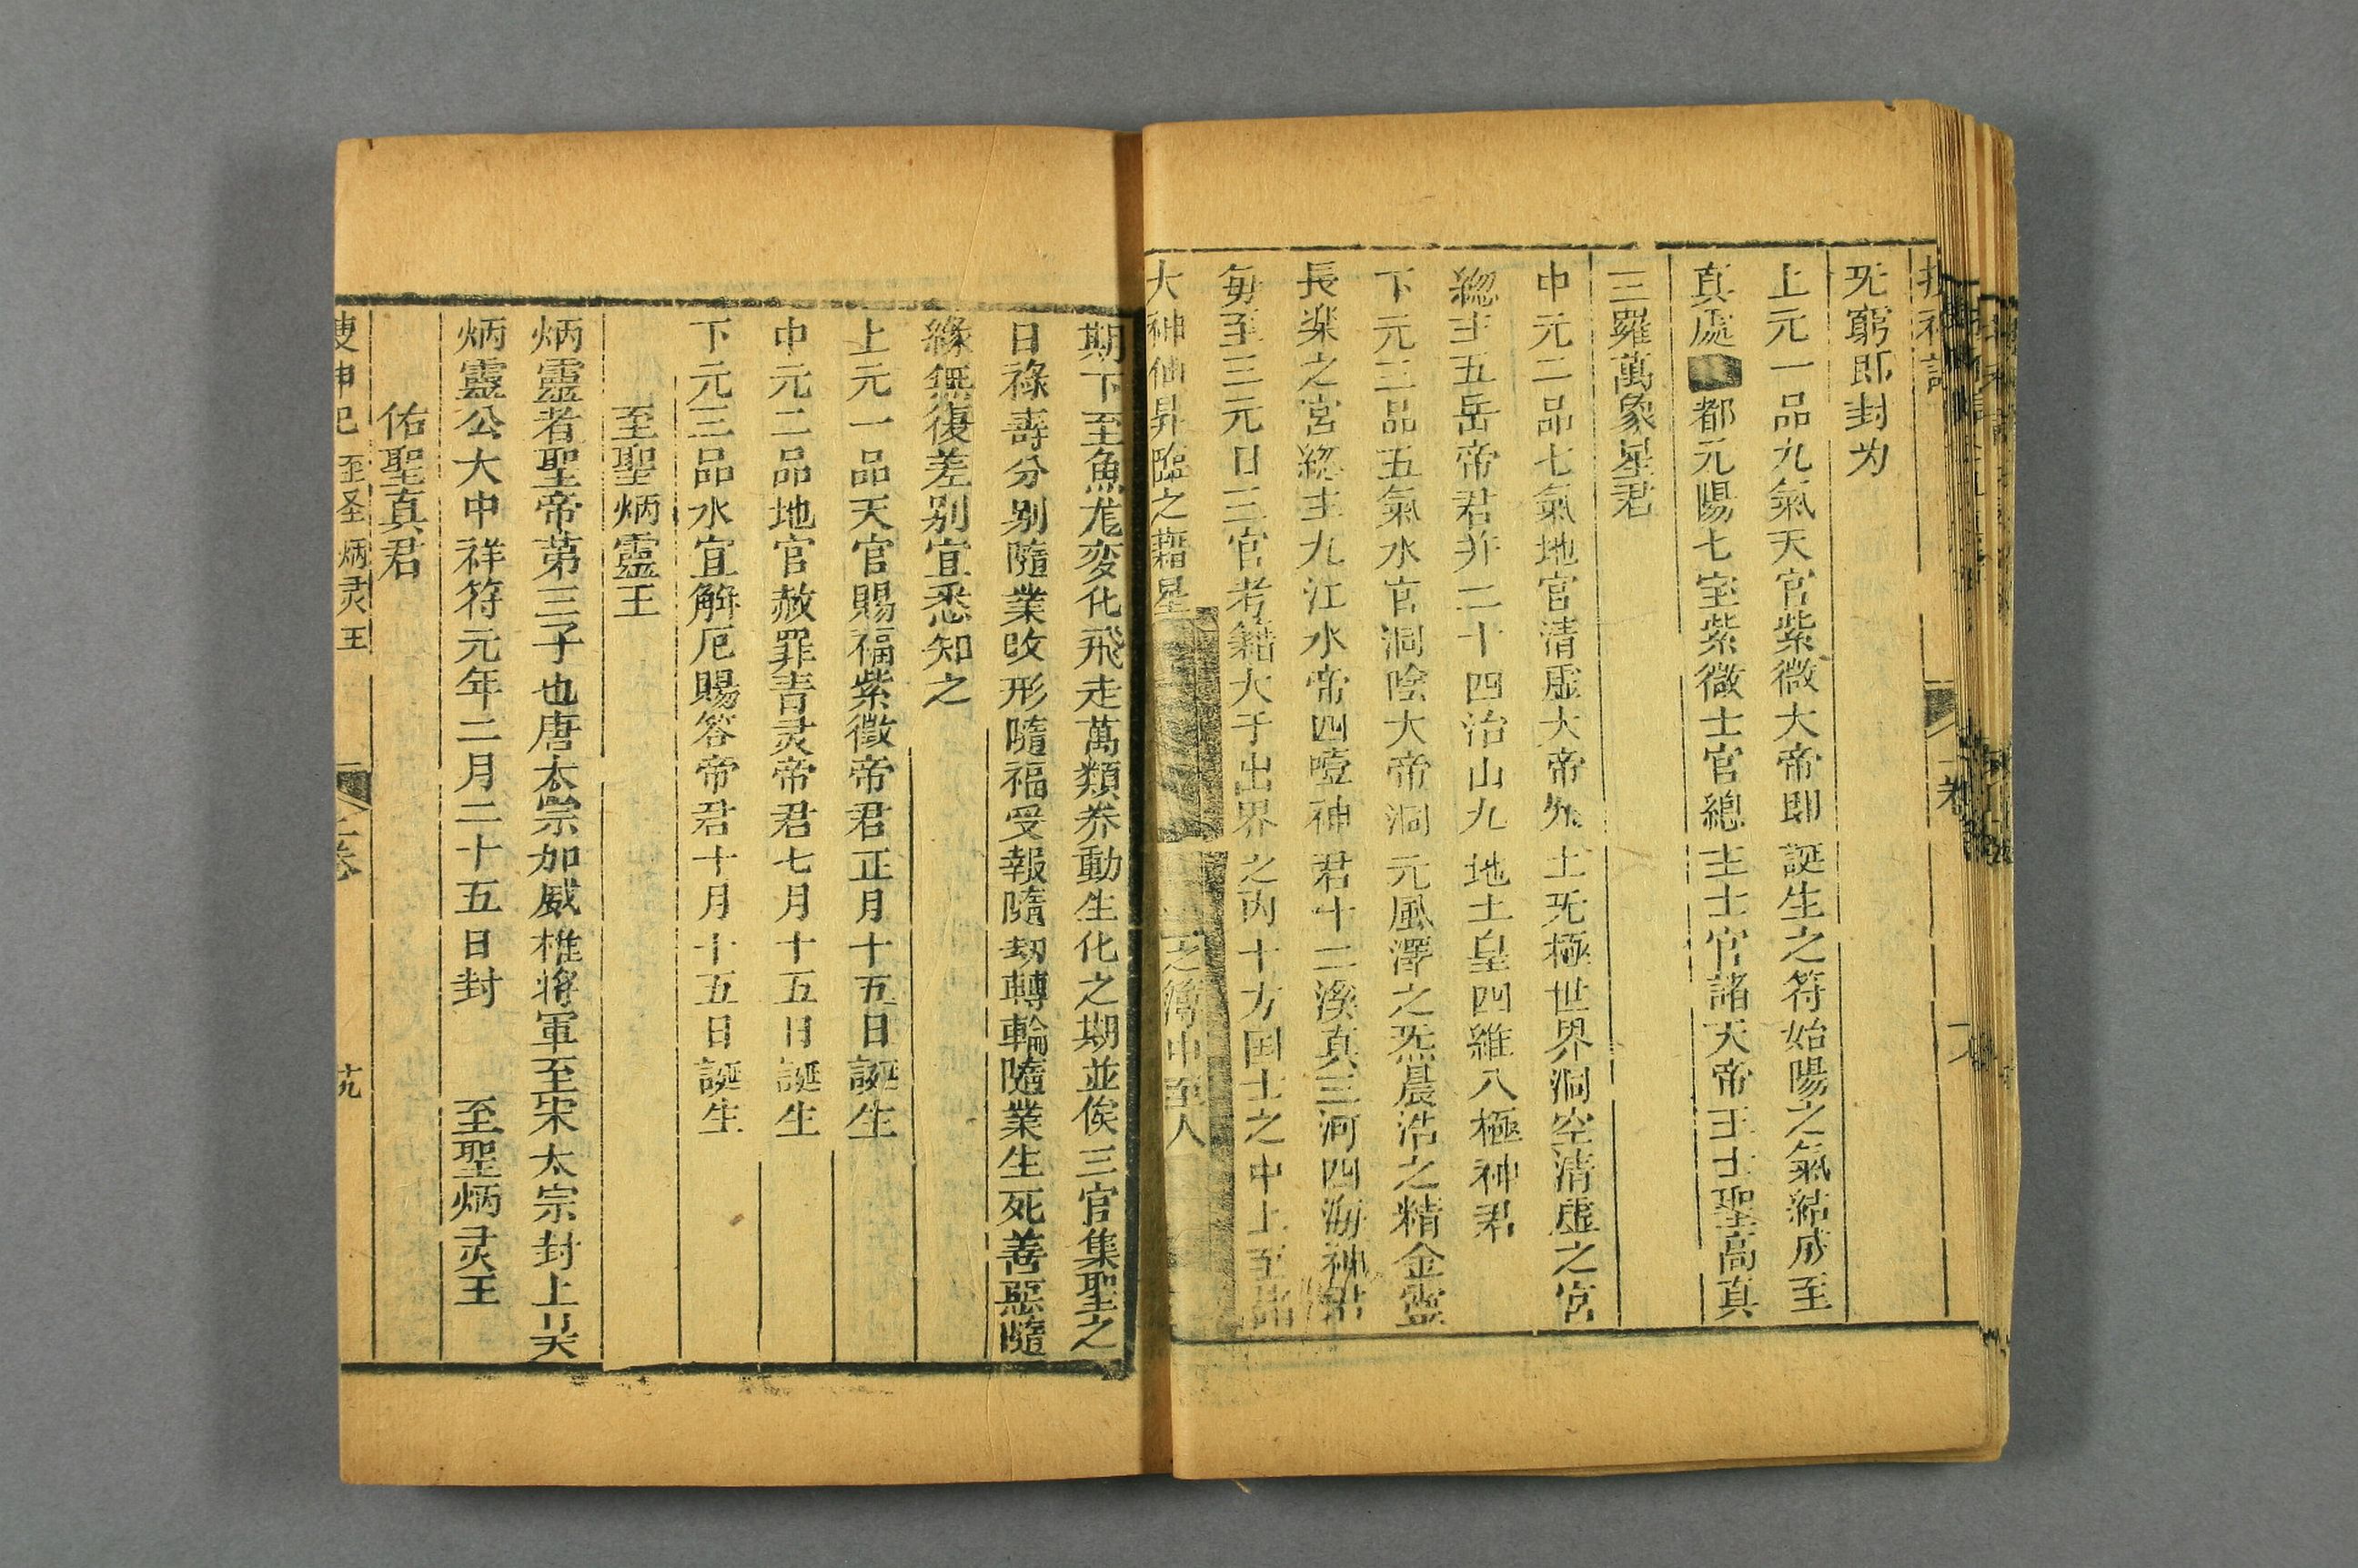 搜神記
一卷
无窮即封为
上元一品九氣天官紫微大帝即誕生之符始陽之氣結成至
真處都元陽七宝紫微士官總主士官諸天帝王士聖高真
三羅萬象星君
中元二品七氣地官清虛大帝土无極世界洞空清虛之宮
緫主五岳帝君并二十四治山九地土皇四維八極神君
下元三品五氣水官洞陰大帝洞元風澤之炁晨浩之精金靈
長楽之宮緫主九江水帝四瀆神君十二溪真三河四海神君
毎至三元日三官考籍大千出界之内十方国士之中上至諸
大神仙昇臨之藉星之濟中至人
期下至魚尨変化飛走萬類养動生化之期並俟三官集聖之
日祿壽分别隨業改形隨福受報隨劫轉輪隨業生死善惡隨
緣無復差别宜悉知之
上元一品天官賜福紫微帝君正月十五日誕生
中元二品地官赦罪青灵帝君七月十五日誕生
下元三品水官觧厄賜答帝君十月十五日誕生
至聖炳靈王
炳靈者聖帝第三子也唐太宗加威雄將軍至宋太宗封上
炳靈公大中祥符元年二月二十五日封 至聖炳灵王
佑聖真君
搜神記 至圣炳灵王 卷 十九